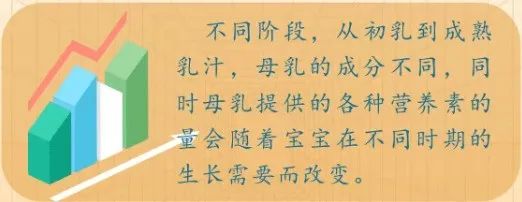 不同阶段，从初乳到成熟
乳汁，母乳的成分不同，同
时母乳提供的各种营养素的
量会随着宝宝在不同时期的
生长需要而改变。